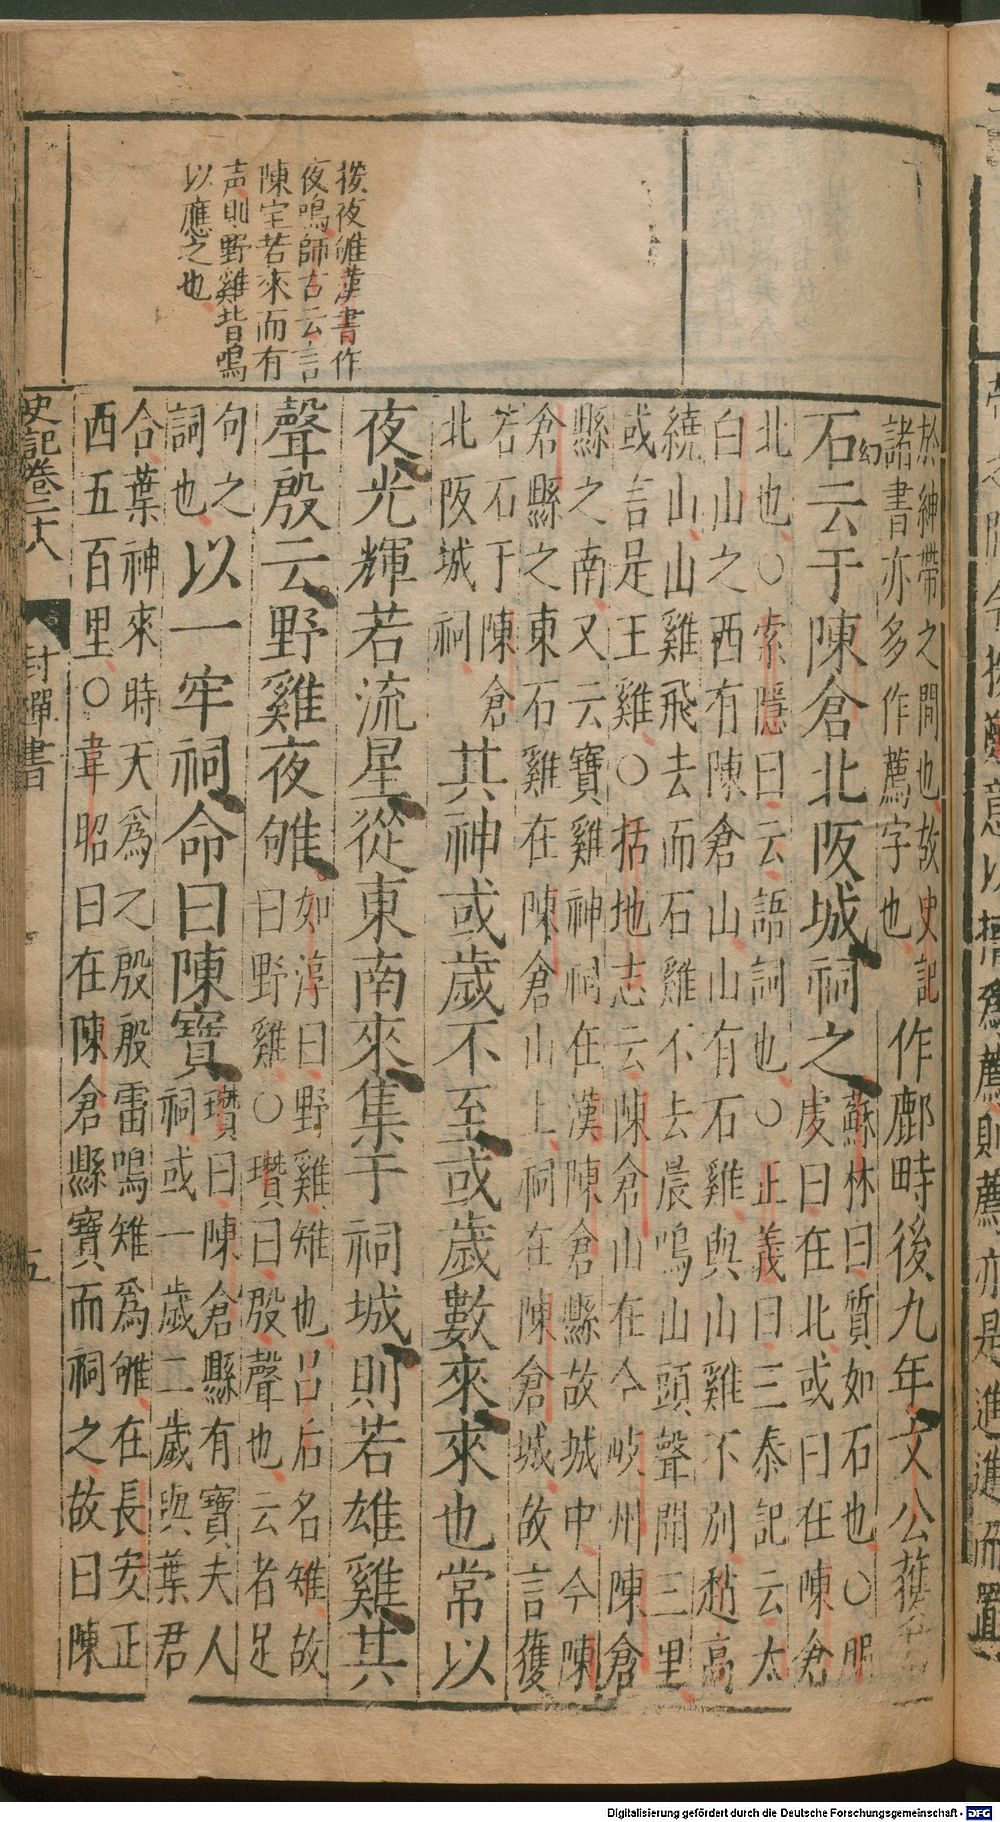 按夜雊漢書作
夜鳴師古云言
陳宝若來而有
声則野雞皆鳴
以應之也
於紳帶之間也故史記
諸書亦多作薦字也
作鄜畤後九年文公獲若
石云于陳倉北阪城祠之
蘇林曰質如石也○服
虔曰在北或曰在陳倉
北也○索隱曰云語詞也○正義曰三秦記云太
白山之西有陳倉山山有石雞與山雞不別趙高
繞山山雞飛去而石雞不去晨鳴山頭聲聞三里
或言是王雞○括地志云陳倉山在今岐州陳倉
縣之南又云寶雞神祠在漢陳倉縣故城中今陳
倉縣之東石雞在陳倉山上祠在陳倉城故言獲
若石于陳倉
北阪城祠
其神或歲不至或歲數來來也常以
夜光輝若流星從東南來集于祠城則若雄雞其
聲殷云野雞夜雊
如淳曰野雞雉也呂后名雉故
曰野雞○瓚曰殷聲也云者足
句之
詞也
以一牢祠命曰陳寶
瓚曰陳倉縣有寶夫人
祠或一歲二歲與葉君
合葉神來時天爲之殷殷雷鳴雉爲雊在長安正
西五百里○韋昭曰在陳倉縣寶而祠之故曰陳
史記卷二十八
封禪書
五
Digitalisierung gefördert durch die Deutsche Forschungsgemeinschaft - DFG